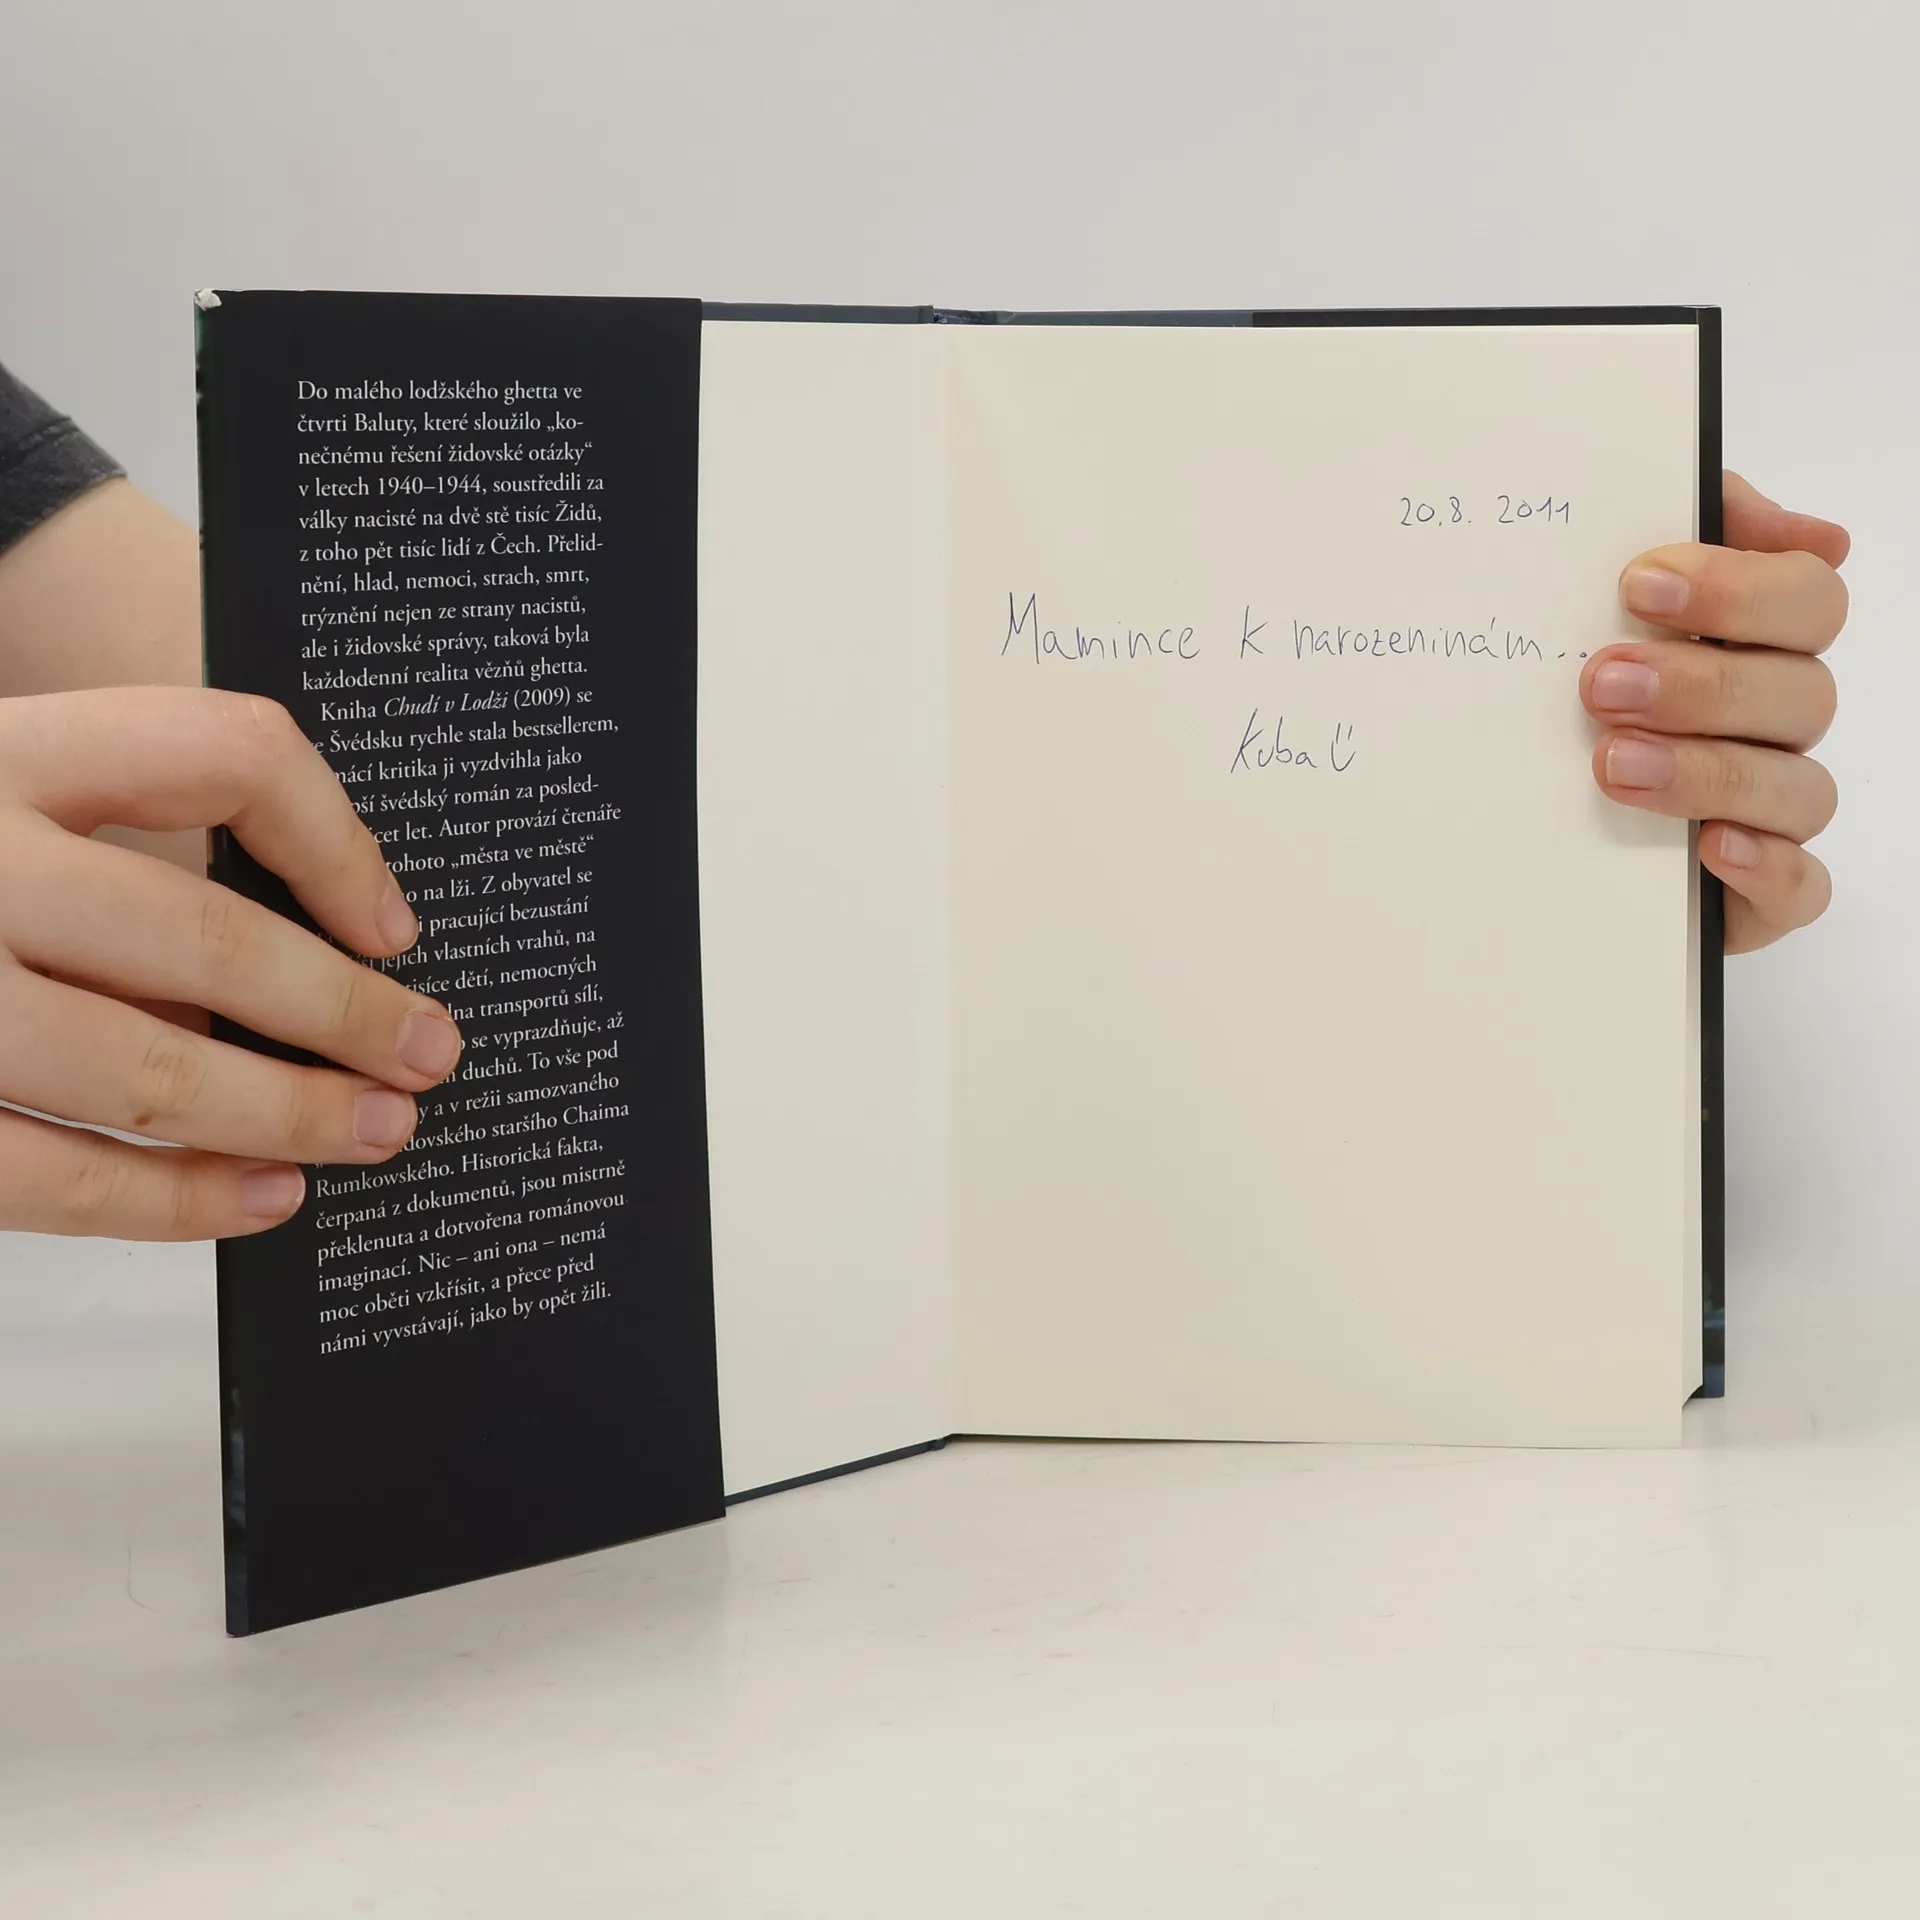 Do malého lodžského ghetta ve
čtvrti Baluty, které sloužilo „ko-
nečnému řešení židovské otázky“
v letech 1940–1944, soustředili za
války nacisté na dvě stě tisíc Židů,
z toho pět tisíc lidí z Čech. Přelid-
nění, hlad, nemoci, strach, smrt,
trýznění nejen ze strany nacistů,
ale i židovské správy, taková byla
každodenní realita vězňů ghetta.
Kniha Chudí v Lodži (2009) se
Švédsku rychle stala bestsellerem,
kritika ji vyzdvihla jako
švédský román za posled-
let. Autor provází čtenáře
tohoto „města ve městě“
na lži. Z obyvatel se
i pracující bezustání
jejich vlastních vrahů, na
tisíce dětí, nemocných
transportů sílí,
se vyprazdňuje, až
duchů. To vše pod
a v režii samozvaného
staršího Chaima
Rumkowského. Historická fakta,
čerpaná z dokumentů, jsou mistrně
překlenuta a dotvořena románovou
imaginací. Nic – ani ona – nemá
moc oběti vzkřísit, a přece před
námi vyvstávají, jako by opět žili.
20.8. 2011
Mamince k narozeninám...
Kuba